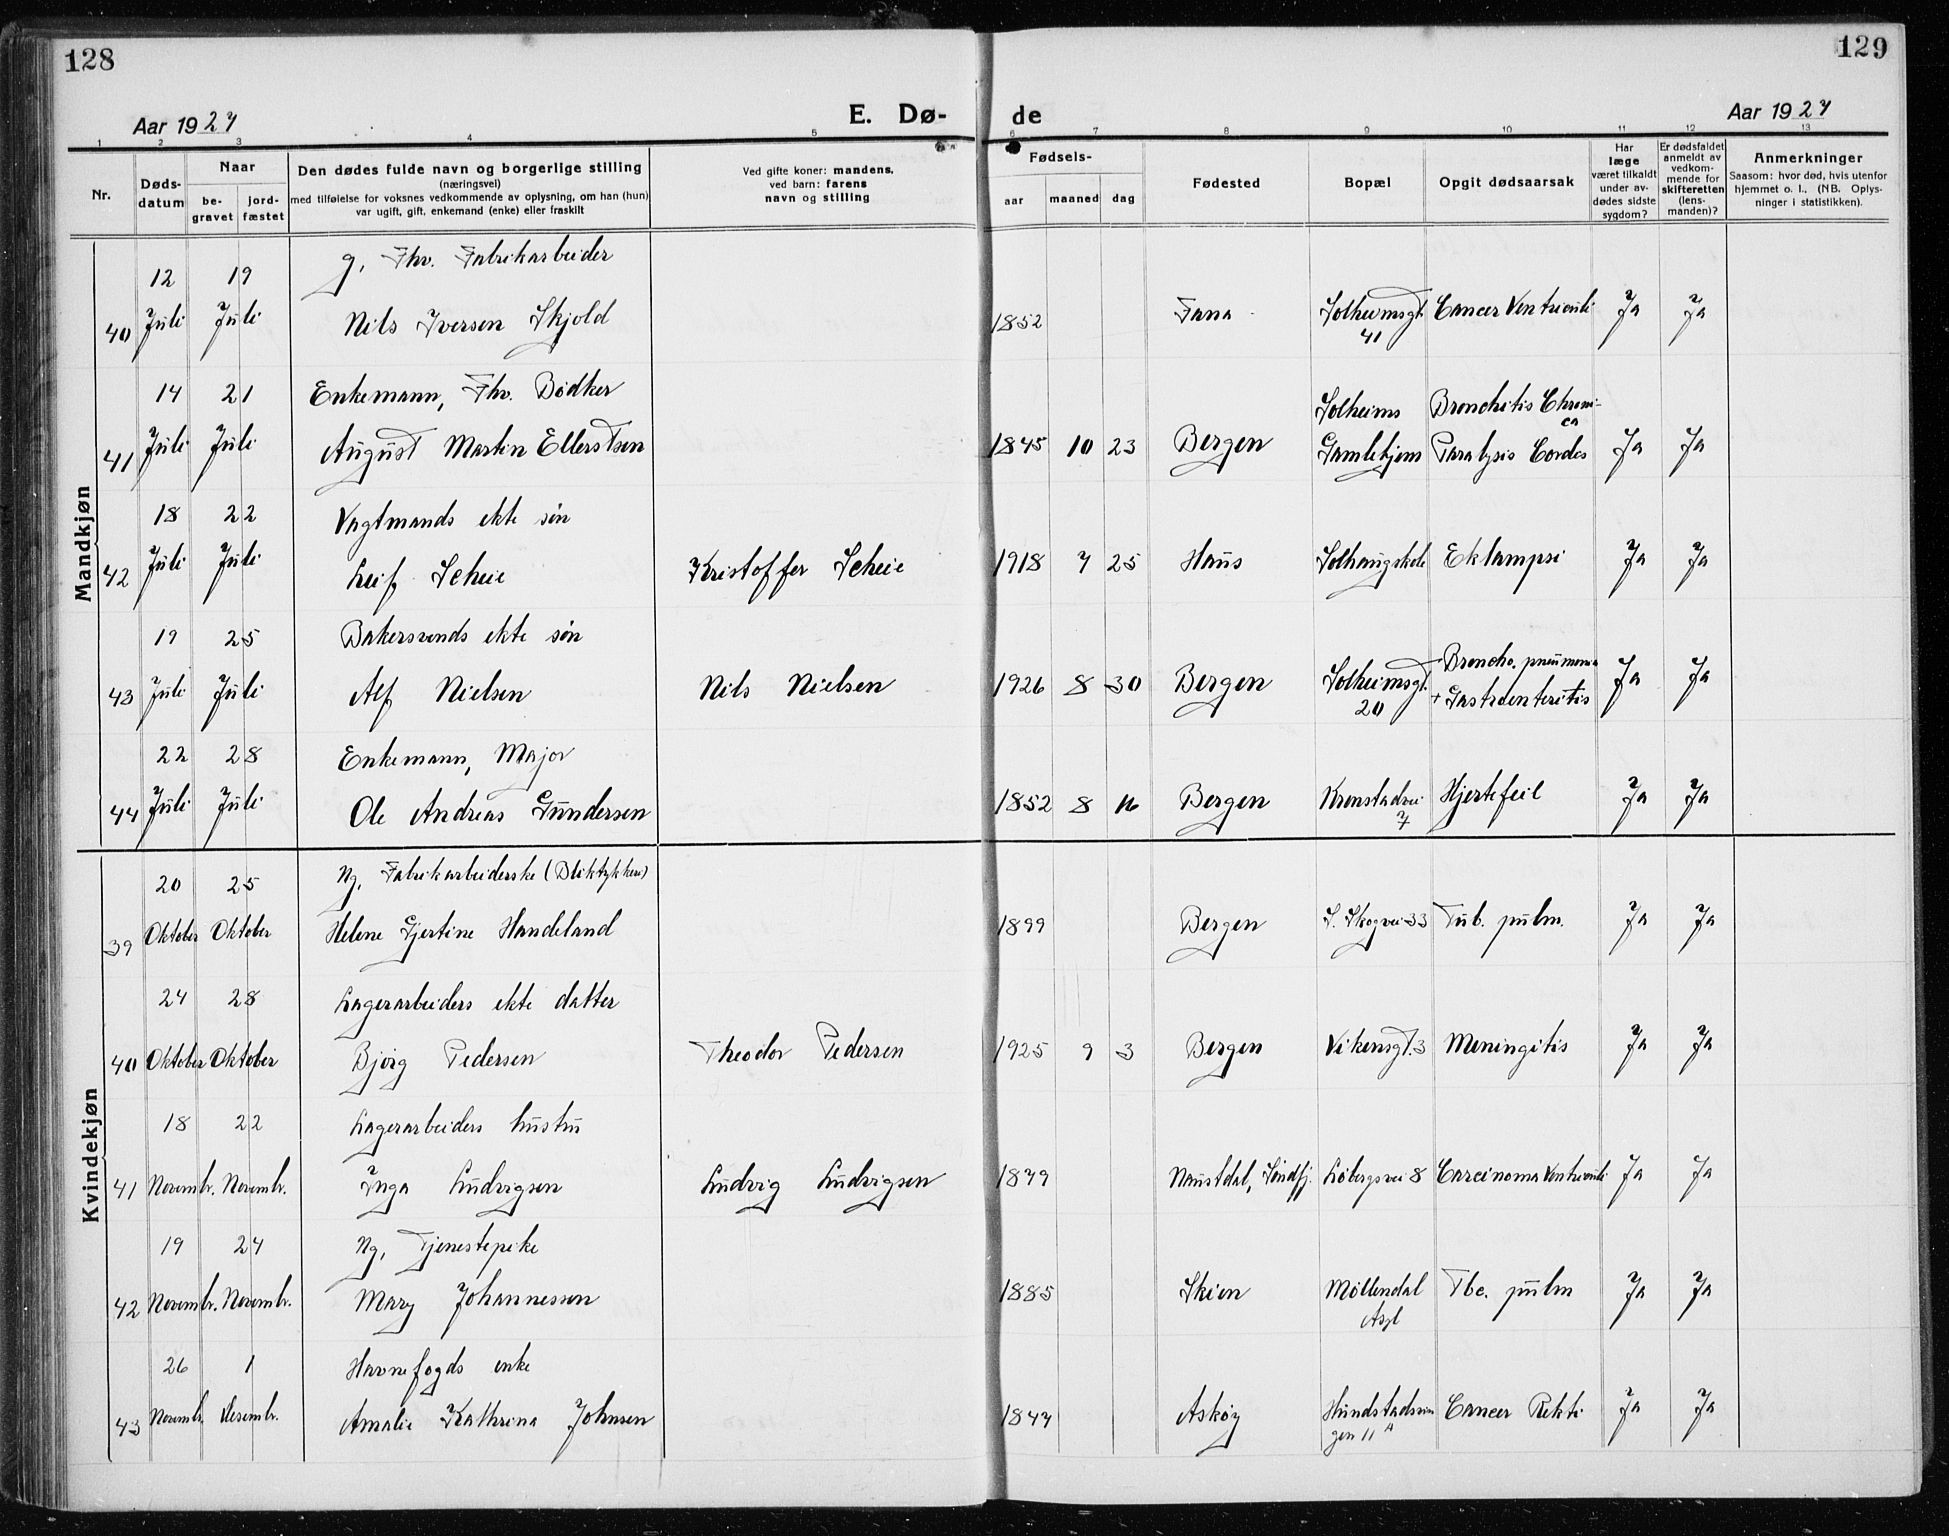 128
129
Aar 1927
E. Dø-
de
Aar 1927
1 2 3 4 5 6 7 8 9 10 11 12 13
Nr.
Døds-
datum
Naar
be-
gravet
jord-
fæstet
Den dødes fulde navn og borgerlige stilling
(næringsvei)
med tilføielse for voksnes vedkommende av oplysning, om han (hun)
var ugift, gift, enkemand (enke) eller fraskilt
Ved gifte koner: mandens,
ved barn: farens
navn og stilling
Fødsels-
aar maaned dag
Fødested
Bopæl
Opgit dødsaarsak
Har
læge
været tilkaldt
under av-
dødes sidste
sygdom?
Er dødsfaldet
anmeldt av
vedkom-
mende for
skifteretten
(lens-
manden)?
Anmerkninger
Saasom: hvor død, hvis utenfor
hjemmet o. l., (NB. Oplys-
ninger i statistikken).
Mandkjøn
12 19 g, Fhv. Fabrikarbeider
40 Juli Juli Nils Iversen Skjold 1852 Fana Solheimsgt. Cancer Ventriculi Ja Ja
41
14 21 Enkemann, Fhv. Bødker Solheims Bronchitis Chroni-
ca
41 Juli Juli August Martin Ellertsen 1845 10 23 Bergen Gamlehjem Paralysis Cordis Ja Ja
18 22 Vagtmands ekte søn
42 Juli Juli Leif Scheie Kristoffer Scheie 1918 7 25 Haus Solhaugskole Eklampsi Ja Ja
19 25 Bakersvends ekte søn Broncho. pneumonia
43 Juli Juli Alf Nielsen Nils Nielsen 1926 8 30 Bergen Solheimsgt. + Gastroenteritis Ja Ja
20
22 28 Enkemann, Major
44 Juli Juli Ole Andreas Gundersen 1852 8 16 Bergen Kronstadvei Hjertefeil Ja Ja
7
Kvindekjøn
20 25 Ug, Fabrikarbeiderske (Bliktrykkeri)
39 Oktober Oktober Helene Gjertine Handeland 1899 Bergen S. Skogvei 33 Tub. pulm. Ja Ja
24 28 Lagerarbeiders ekte datter
40 Oktober Oktober Bjørg Pedersen Theodor Pedersen 1925 9 3 Bergen Vikensgt. 3 Meningitis Ja Ja
18 22 Lagerarbeiders hustru
41 Novembr. Novembr. Inga Ludvigsen Ludvig Ludvigsen 1879 Naustdal, Søndfj. Løbergsvei 8 Carcinoma Ventriculi Ja Ja
19 24 Ug, Tjenestepike
42 Novembr. Novembr. Mary Johannessen 1885 Skien Møllendal Tbc. pulm Ja Ja
Asyl
26 1 Havnefogds enke
43 Novembr. Desembr. Amalie Kathrina Johnsen 1847 Askøy Hunstadsvin Cancer Rekti Ja Ja
gen 11 A